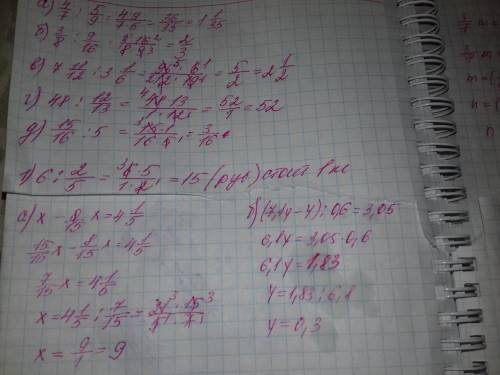 а) 4/7 : 5/9 = 4·9/7·5 = 36/35 = 1 1/35
б) 3/8 : 9/16 = 3·16/8·9 = 2/3
в) 7 11/12 : 3 1/6 = 95·6/12·19 = 5/2 = 2 1/2
г) 48 : 12/13 = 48·13/1·12 = 52/1 = 52
д) 15/16 : 5 = 15·1/16·5 = 3/16
6 : 2/5 = 6·5/1·2 = 15 (руб) стоит 1 кг
а) x - 8/15 x = 4 1/5
15/15 x - 8/15 x = 4 1/5
7/15 x = 4 1/5
x = 4 1/5 : 7/15 = 21·15/5·7
x = 9/1 = 9
б) (7,1y - y) : 0,6 = 3,05
6,1y = 3,05·0,6
6,1y = 1,83
y = 1,83 : 6,1
y = 0,3